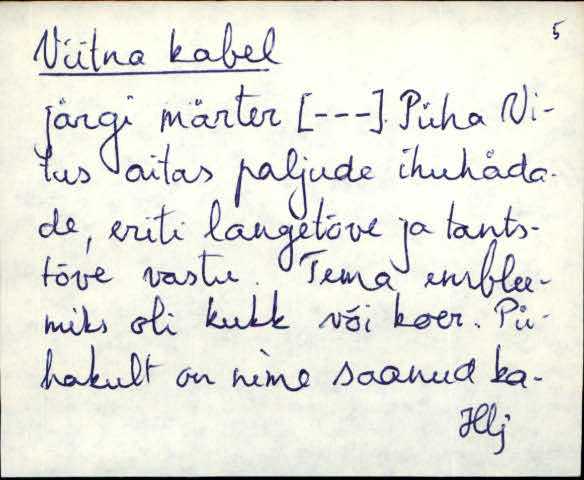 5
Viitna kabel
järgi märter [---]. Püha Vi-
tus aitas paljude ihuhäda-
de, eriti langetõve ja tants-
tõve vastu. Tema emblee-
miks oli kukk või koer. Pü-
hakult on nime saanud ka-
Hlj